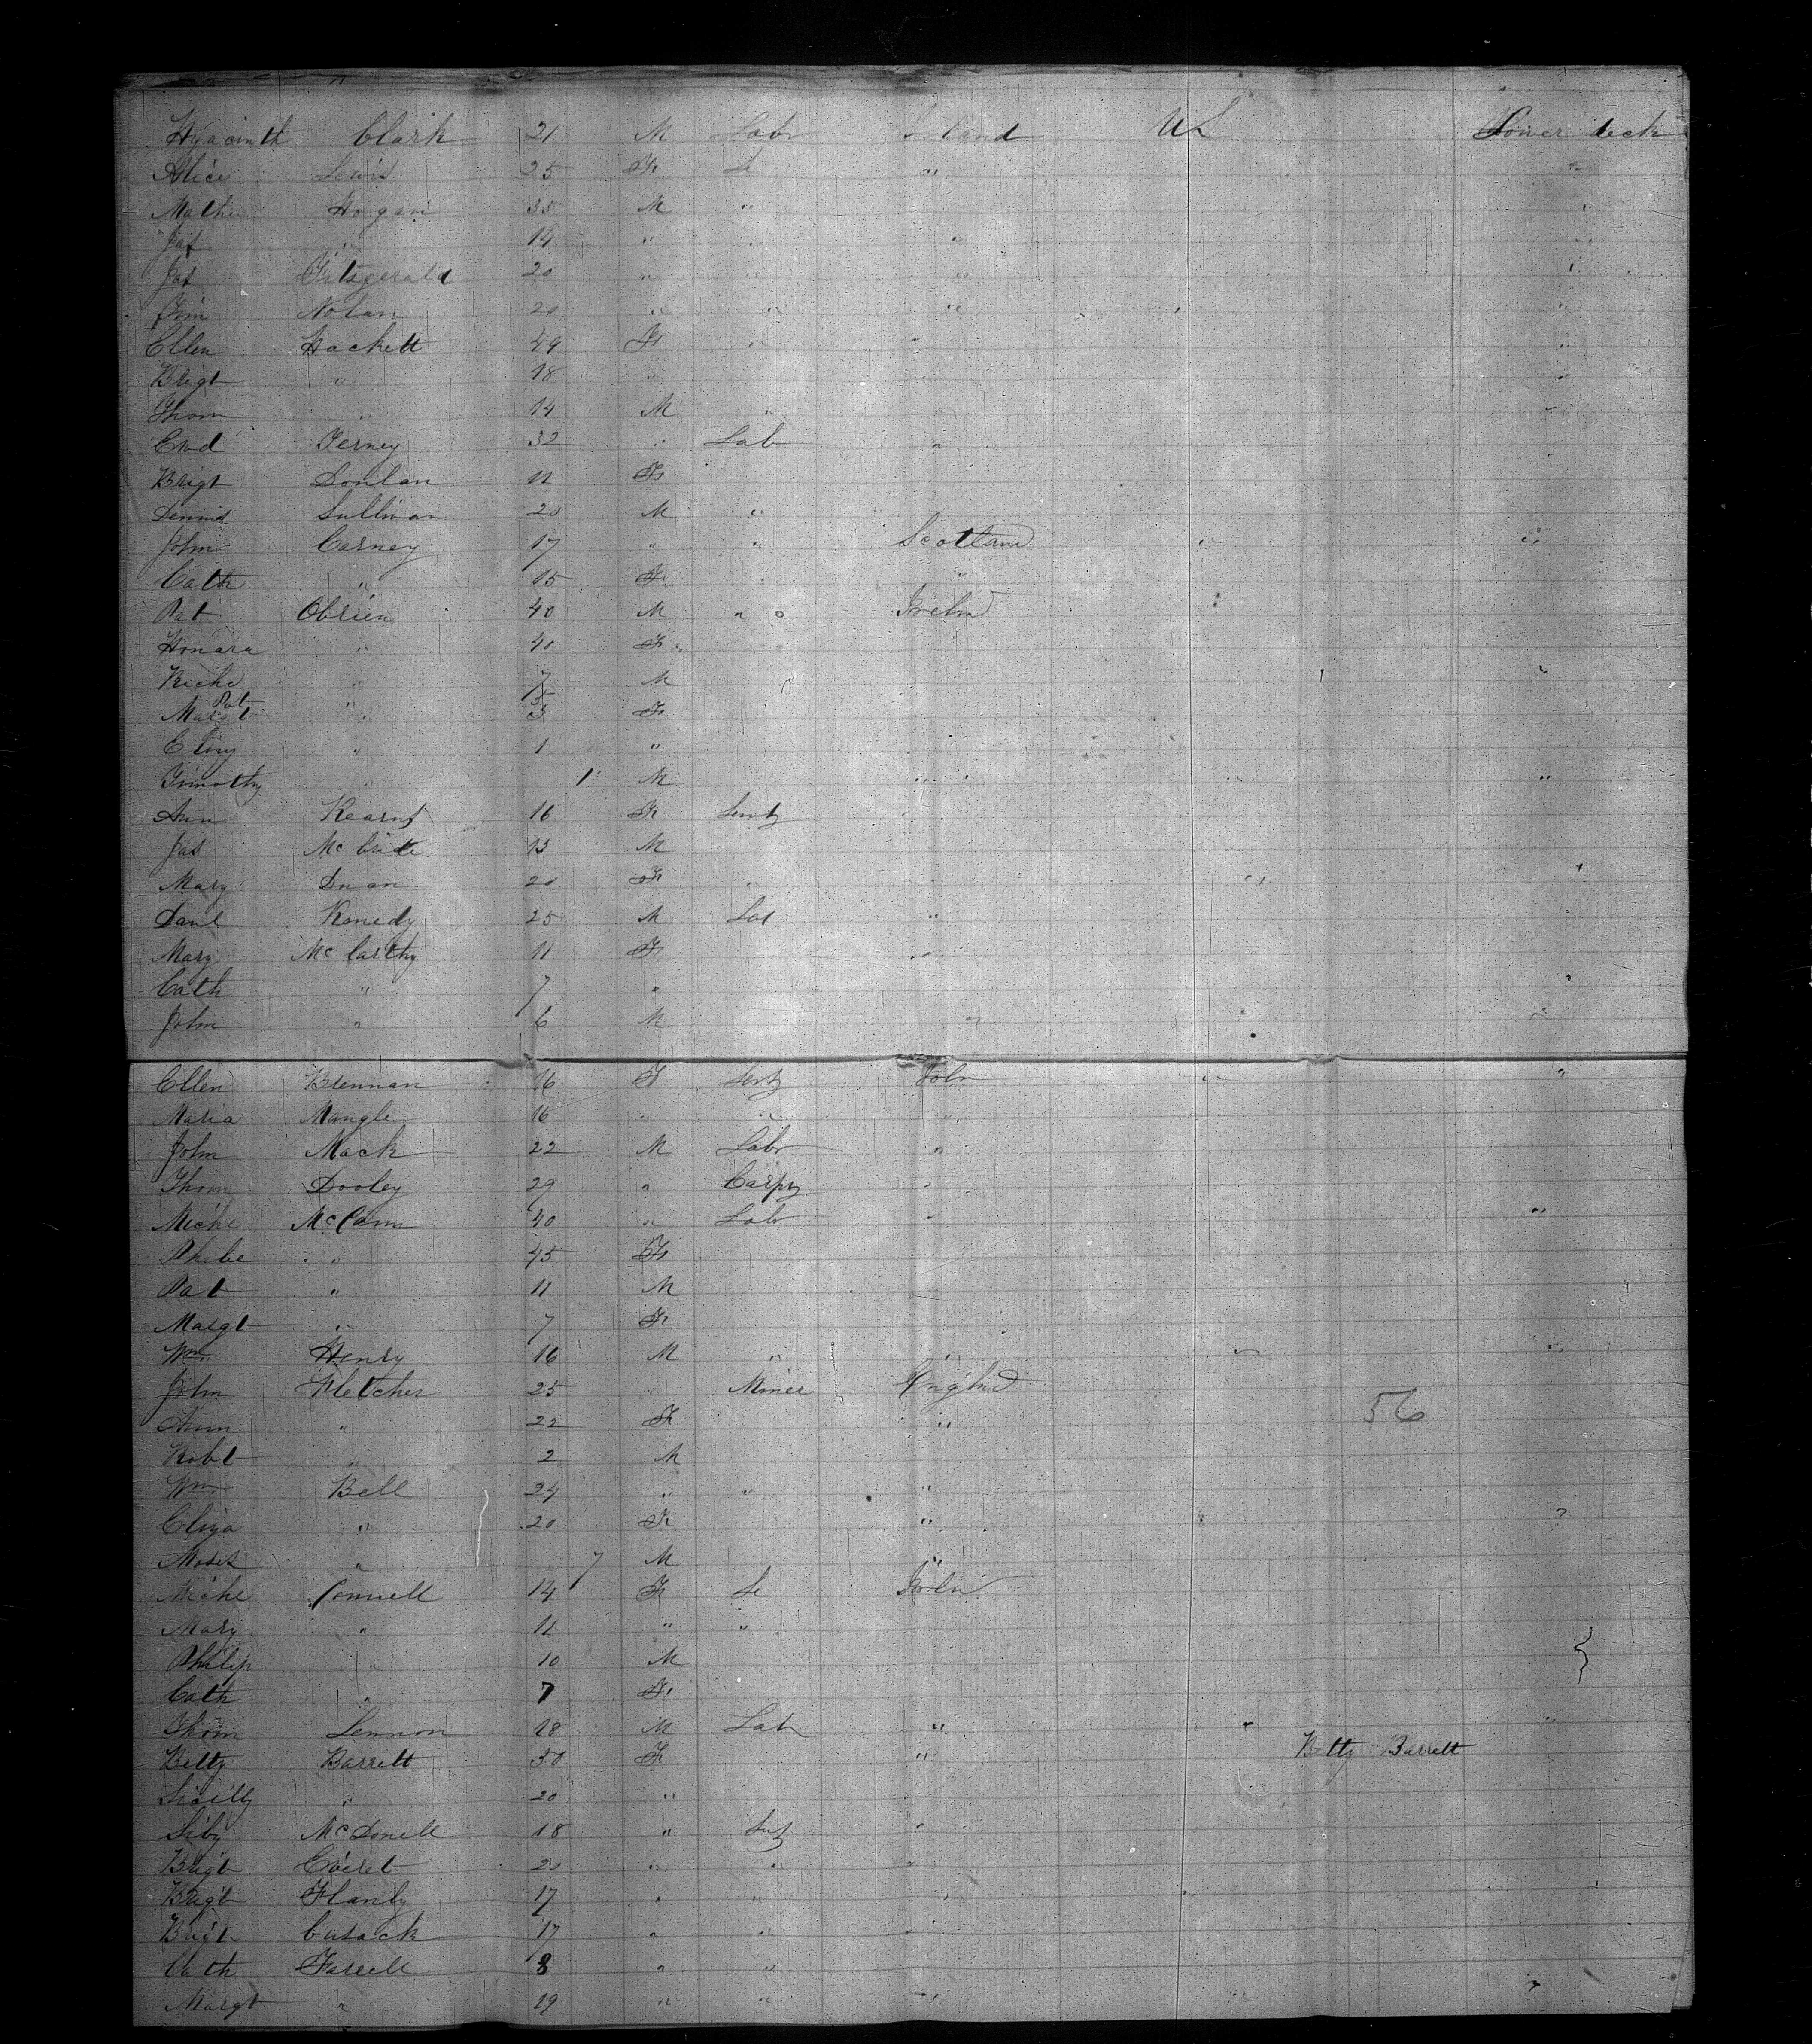 Hyacinth Clark 21 M Labr Ireland US Lower deck
Alice Lewis 25 F "
Hogan 35 M " "
Jas " 14 " " "
Jas Fitsgerald 20 " " " "
Jim Nolan 20 " " " "
Ellen Hackett 49 F " " "
Brigt " 18 " "
Thom " 14 M " " "
Ewd Terney 32 " Lab "
Brigt Donlan 11 F
Dennis Sullivan 20 M "
John Carney 17 " " Scotland " "
Cath " 15 F
Pat Obrien 40 M " Ireln "
Honara " 40 F
Miche " 7 M "
Pat " 5
Margt " 3 F
" 1 "
Timothy " 1 M " " "
Ann Kearns 16 F Servt
Jas Mc bride 13 M
Mary 20 F " "
Danl Kenedy 25 M Lab "
Mary Mc Carthy 11 F "
Cath " 7 "
John " 6 M " " "
Ellen Brennan 16 F Servt Ireln " "
Maria Mangle 16 " " "
John Mack 22 M Labr "
Thom Dooley 29 " Carpr "
Miche McCann 40 " Lab " "
Phebe " 45 F
Pat " 11 M
Margt " 7 F
Wm Henry 16 M " " " "
John Fletcher 25 " Miner Englnd
Ann " 22 F " 56
Robt " 2 M
Wm Bell 24 " " "
Eliza " 20 F " "
Moses " 7 M "
Miche Connell 14 F Ireln
Mary " 11 " "
Philip " 10 M
Cath " 7 F
Thom Lennon 18 M Lab " " "
Betty Barrett 30 F " Betty Barrett
" 20 "
Siby McDonell 18 " Svt "
Brigt 20 " " "
Brigt 17 " " "
Brigt Cusack 17 " " "
Cath Farrell 8 " "
Margt " 19 " " " "